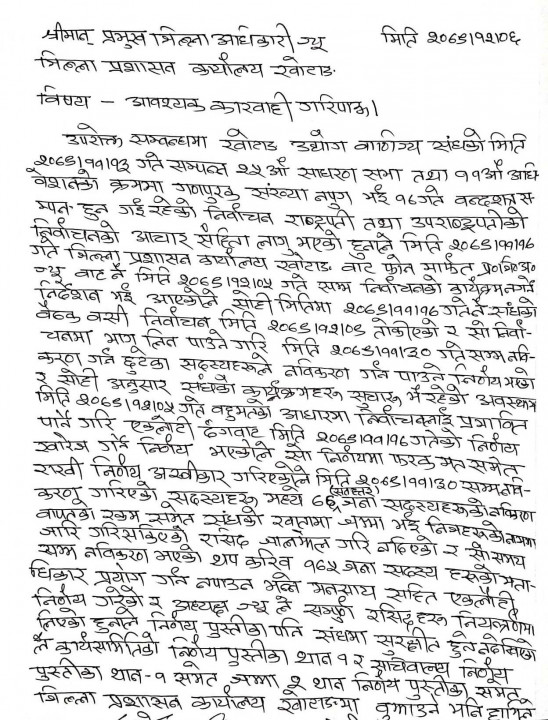 श्रीमान् प्रमुख जिल्ला अधिकारी ज्यू मिति २०७९।१२।०६
जिल्ला प्रशासन कार्यालय खोटाङ
विषय – आवश्यक कारवाही गरिपाऊँ।
उपरोक्त सम्बन्धमा खोटाङ उद्योग वाणिज्य संघको मिति
२०७९।११।१३ गते सम्पन्न २५ औं साधारण सभा तथा ११औं अधि
वेशनको क्रममा गणपुरक संख्या नपुग भई १६ गते वन्दशत्र स
म्पन्न हुन गई रहेको निर्वाचन राष्ट्रपती तथा उपराष्ट्रपतीको
निर्वाचनको आचार संहिता लागु भएको हुनाले मिति २०७९।११।१६
गते जिल्ला प्रशासन कार्यालय खोटाङ बाट फोन मार्फत प्र०जि०अ०
ज्यू बाट नै मिति २०७९।१२।०५ गते सम्म निर्वाचनको कार्यक्रम नगर्न
निर्देशन भई आएकोले सोही मितिमा २०७९।११।१६ गतेनै संघको
बैठक वसी निर्वाचन मिति २०७९।१२।०९ तोकीएको र सो निर्वा
चनमा भाग लिन पाउने गरि मिति २०७९।११।३० गते सम्म नवि-
करण गर्न छुटेका सदस्यहरूले नविकरण गर्न पाउने निर्णय भएको
र सोही अनुसार संघको कार्यक्रमहरू सुचारू भै रहेको अवस्थामा
मिति २०७९।१२।०५ गते वहुमतको आधारमा निर्वाचनलाई प्रभावित
पार्ने गरि एकलौटी ढंगवाट मिति २०७९।११।१६ गतेको निर्णय
खारेज गर्ने निर्णय भएकोले सो निर्णयमा फरक मत समेत
राखी निर्णय अस्वीकार गरिएकोले मिति २०७९।११।३० सम्म नवि-
करण गरिएको सदस्यहरू मध्ये ६७ जना सदस्यहरूको नविकरण
वापतका रकम समेत संघको खातामा जम्मा भई निजहरूको नाममा
जारि गरिसकिएको रसिद गरि नदिएको र सो समय
सम्म नविकरण भएको थप करिव १६५ जना सदस्य हरूको मता-
धिकार प्रयोग गर्न नपाउन भन्ने मनसाय सहित एकलौटी
निर्णय गरेको र अध्यक्ष ज्यू ले सम्पूर्ण रसिदहरू नियन्त्रणमा
लिएको हुनाले निर्णय पुस्तीका पनि संघमा सुरक्षीत हुने नदेखिएको
ले कार्यसमितिको निर्णय पुस्तीका थान १ र सचिवालय निर्णय
पुस्तीका थान-१ समेत जम्मा २ थान निर्णय पुस्तीका समेत
जिल्ला प्रशासन कार्यालय खोटाङमा वुझाउने भनि हामिले